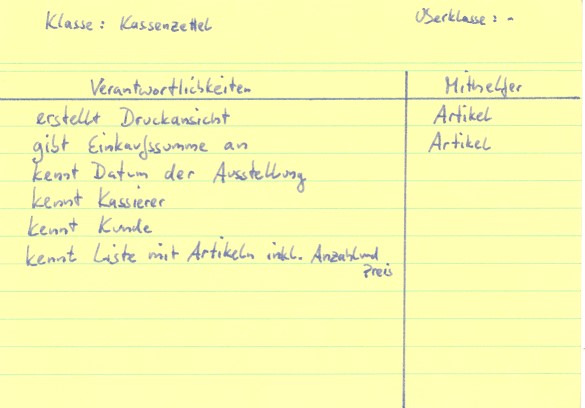 Klasse: Kassenzettel Oberklasse: -
Verantwortlichkeiten Mithelfer
erstellt Druckansicht Artikel
gibt Einkaufssumme an Artikel
kennt Datum der Ausstellung
kennt Kassierer
kennt Kunde
kennt Liste mit Artikeln inkl. Anzahl und
Preis